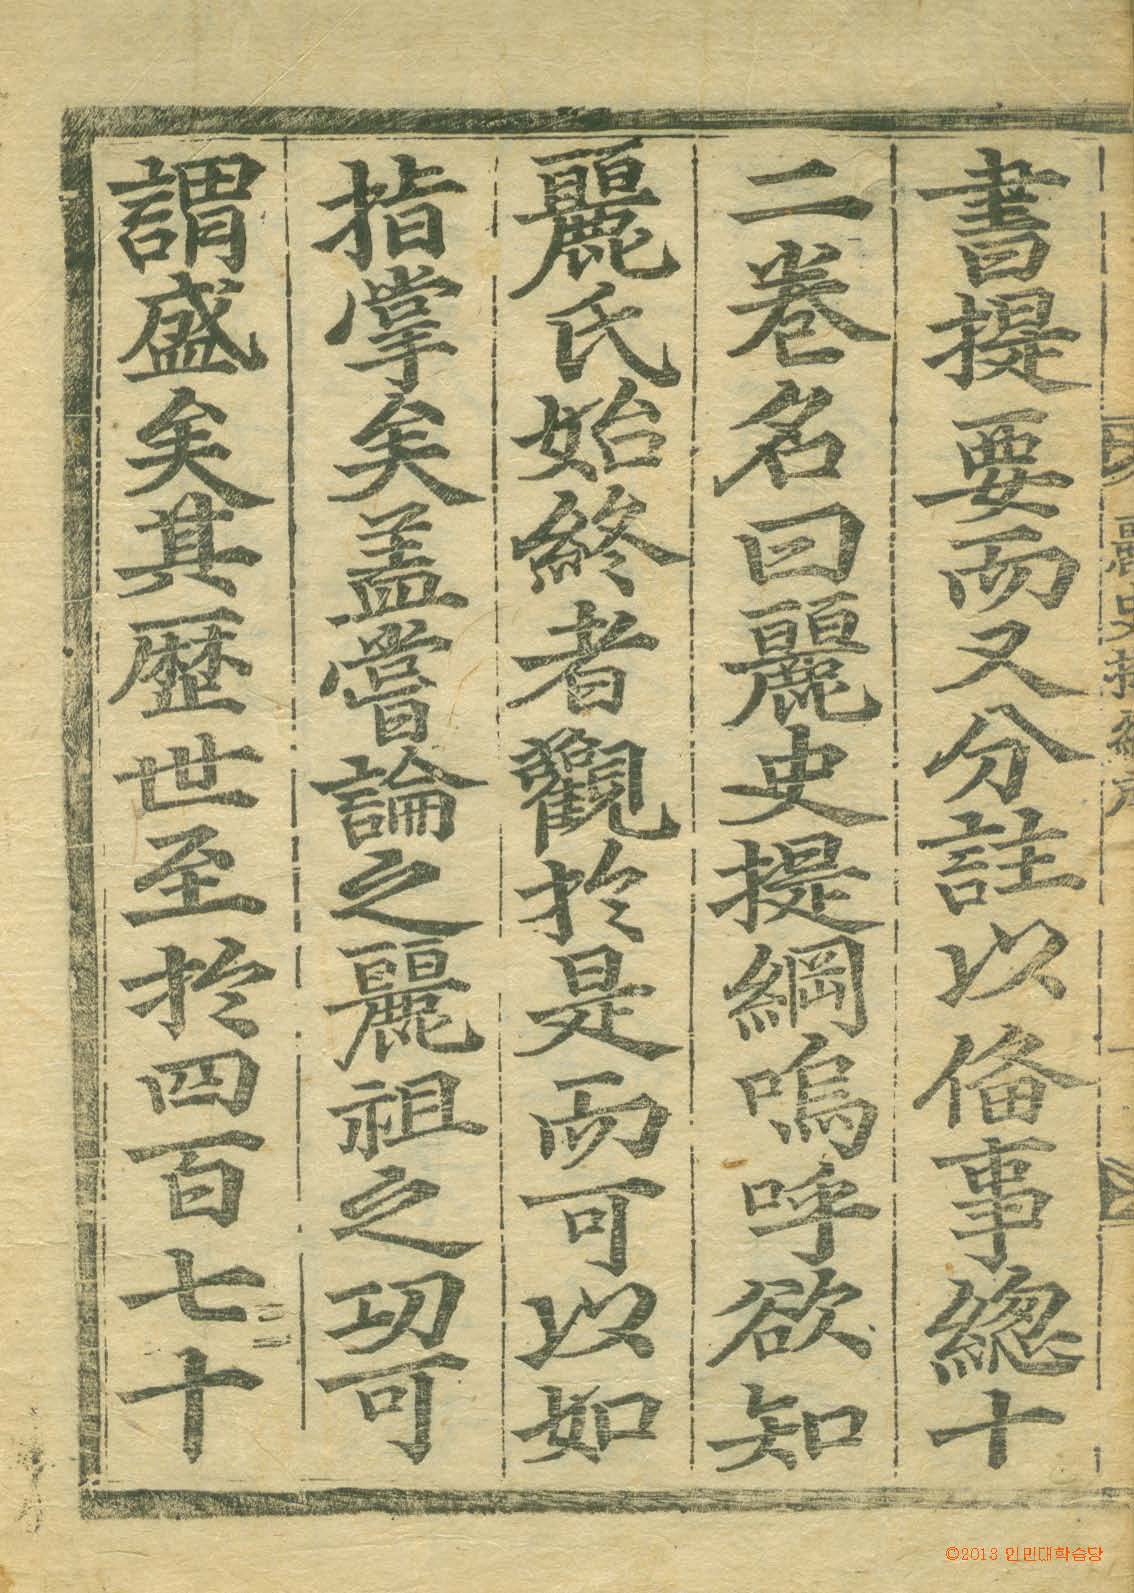 書提要而又分註以俻事緫十
二卷名曰麗史提綱嗚呼欲知
麗氏始終者觀於是而可以如
指掌矣盖嘗論之麗祖之功可
謂盛矣其歷世至於四百七十
麗史提綱序
©2013 인민대학습당